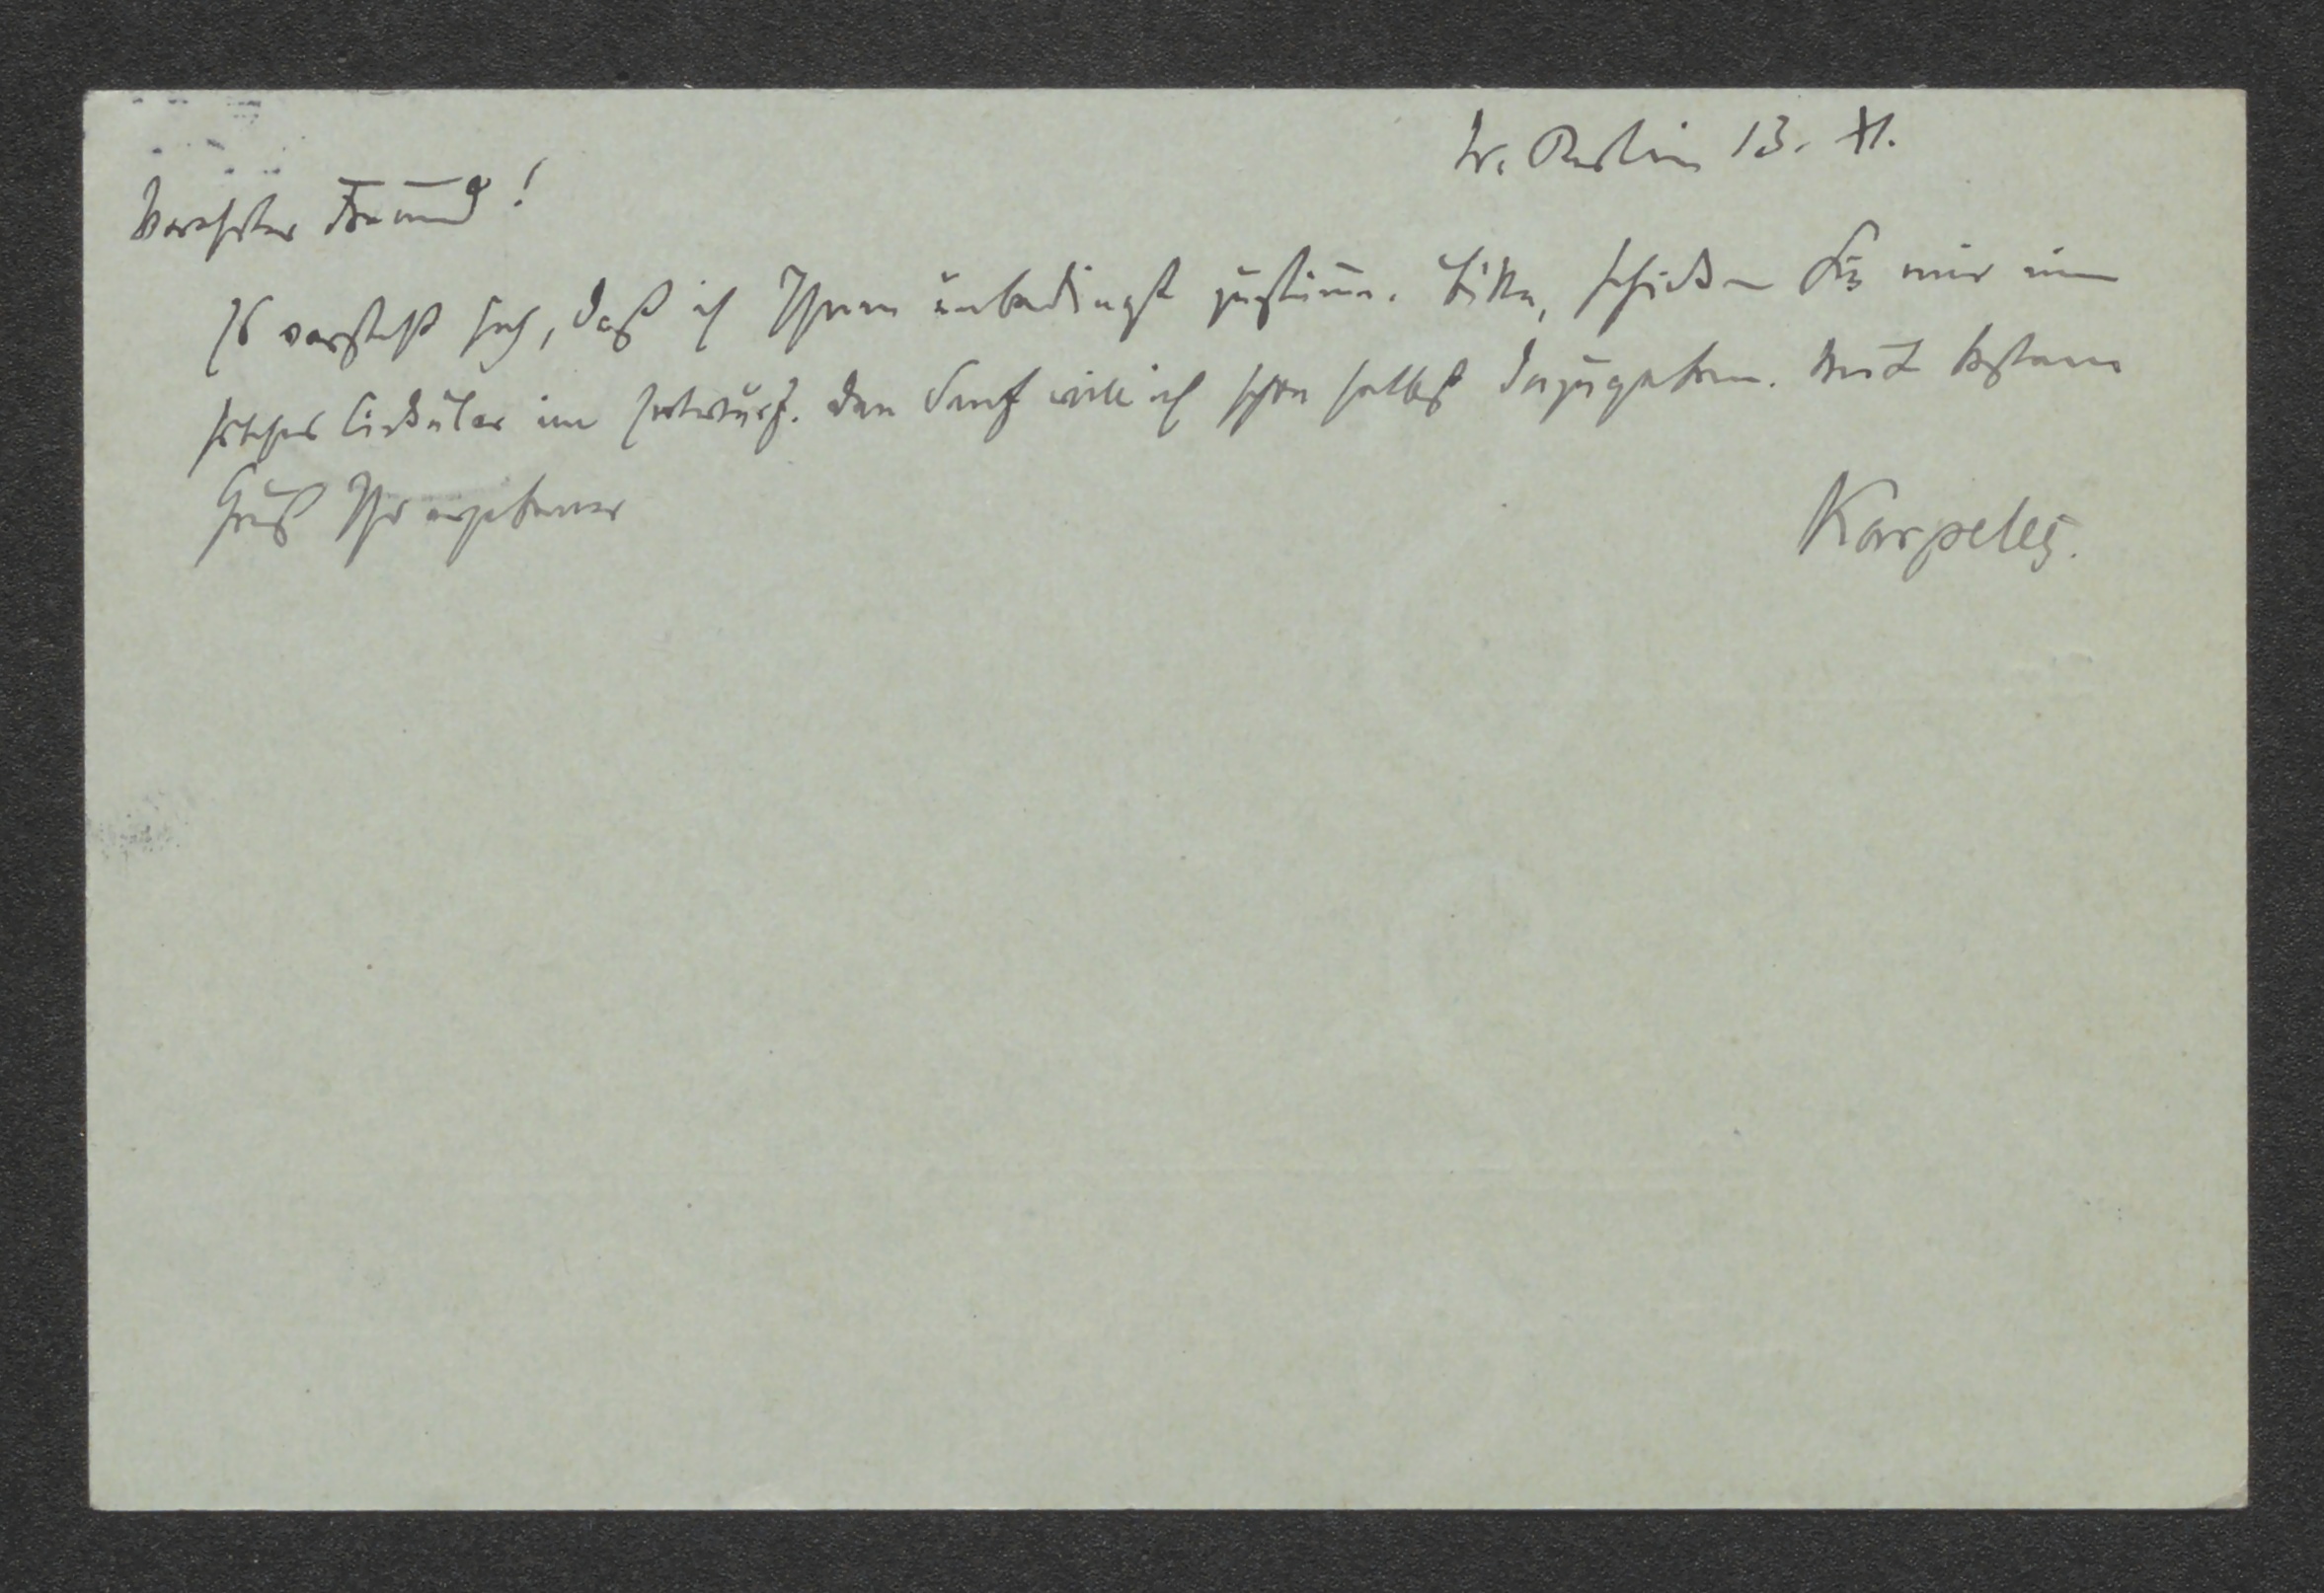 W. Berlin 13. XI.
Verehrter Freund!
Es versteht sich, daß ich Ihnen unbedingt zustimme. Bitte, schicken Sie mir ein
solches Cirkular im Entwurf. Den Senf will ich schon selbst dazugeben. Mit bestem
Gruß Ihr ergebener
Karpeles.